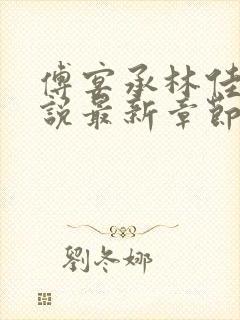 傅宴承林佳
說最新章節
劉冬娜